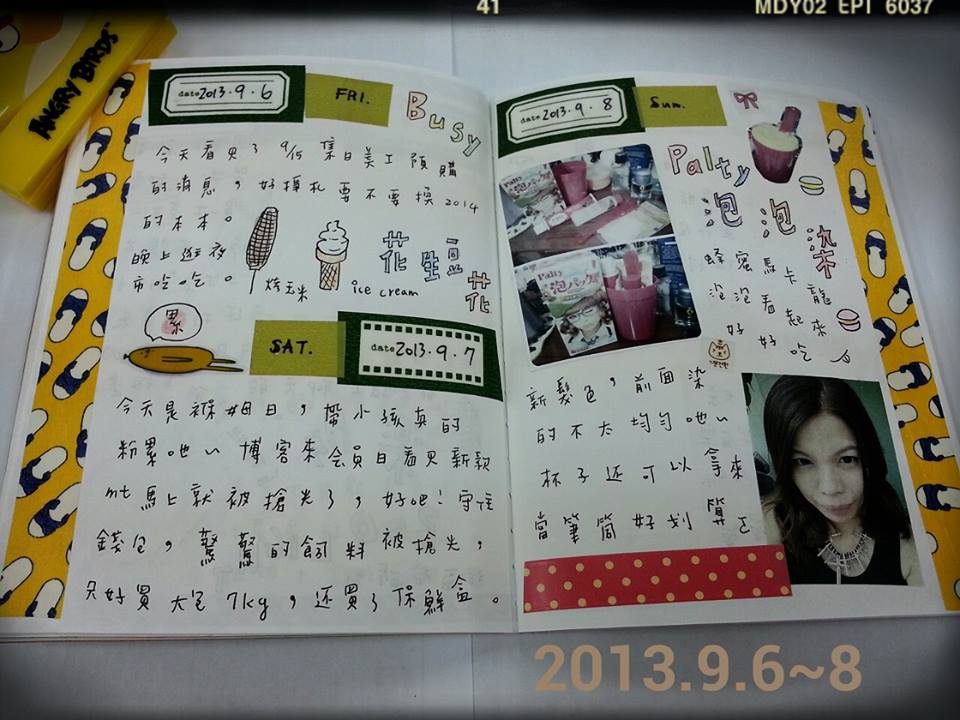 41
MDY02 EPI 6037
ANGRY BIRDS
date 2013.9.6
FRI.
Busy
今天看見了 9/15 集日美工預購
的消息，好掙扎要不要換 2014
的本本。
晚上逛夜
市吃吃。
烤玉米
ice cream
花生
花
累
SAT.
date 2013.9.7
今天是褓姆日，帶小孩真的
粉累吔~ 博客來會員日看見新款
mt 馬上就被搶光了，好吧！守住
錢包，鷩鷩的飼料被搶光，
只好買大包 7kg，還買了保鮮盒。
date 2013.9.8
Sun.
Palty
泡泡染
蜂蜜馬卡龍
泡泡看起來
好好吃
Palty
泡パック
新髮色，前面染
的不太均勻吔~
杯子還可以拿來
當筆筒好划算
2013.9.6~8